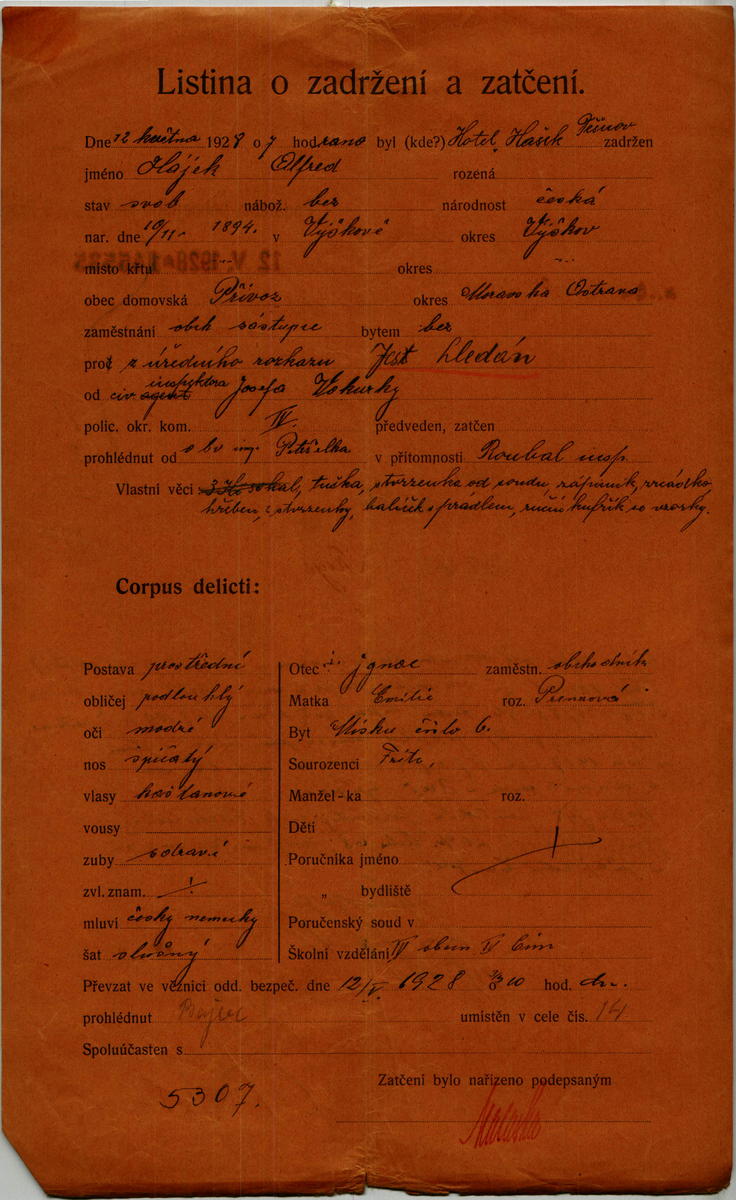 Listina o zadržení a zatčení.
Dne 12 května 1928 o 7 hod rano byl (kde?) Hotel Hašek zadržen
jméno Hájek Alfred rozená
stav svob nábož. bez národnost česká
nar. dne 10/11. 1894. v Vyškově okres Vyškov
12 V. 1928
místo křtu -"- okres -"-
obec domovská Přívoz okres Moravska Ostrava
zaměstnání obch zástupce bytem bez
proč z úředního rozkazu Jest hledán
od civ agent inspektora Josefa Vokurky
polic. okr. kom. IV. předveden, zatčen
prohlédnut od Petrželka v přítomnosti Roubal insp.
Vlastní věci tužka, stvrzenka od soudu, zápisník, zrcádko,
hřeben, 2 stvrzenky, balíček s prádlem, ruční kufřík se vzorky.
Corpus delicti:
Postava prostřední
obličej podlouhlý
oči modré
nos špičatý
vlasy kaštanové
vousy
zuby zdravé
zvl. znam. /.
mluví česky německy
šat slušný
Otec Ignac zaměstn. obchodník
Matka Emilie roz.
Byt číslo 6.
Sourozenci Fritz,
Manžel-ka roz.
Děti
Poručníka jméno
„ bydliště
Poručenský soud v
Školní vzdělání IV obec IV
Převzat ve věznici odd. bezpeč. dne 12/V. 1928 o 3/4 10 hod. do.
prohlédnut umístěn v cele čís. 14
Spoluúčasten s
Zatčení bylo nařízeno podepsaným
5307.